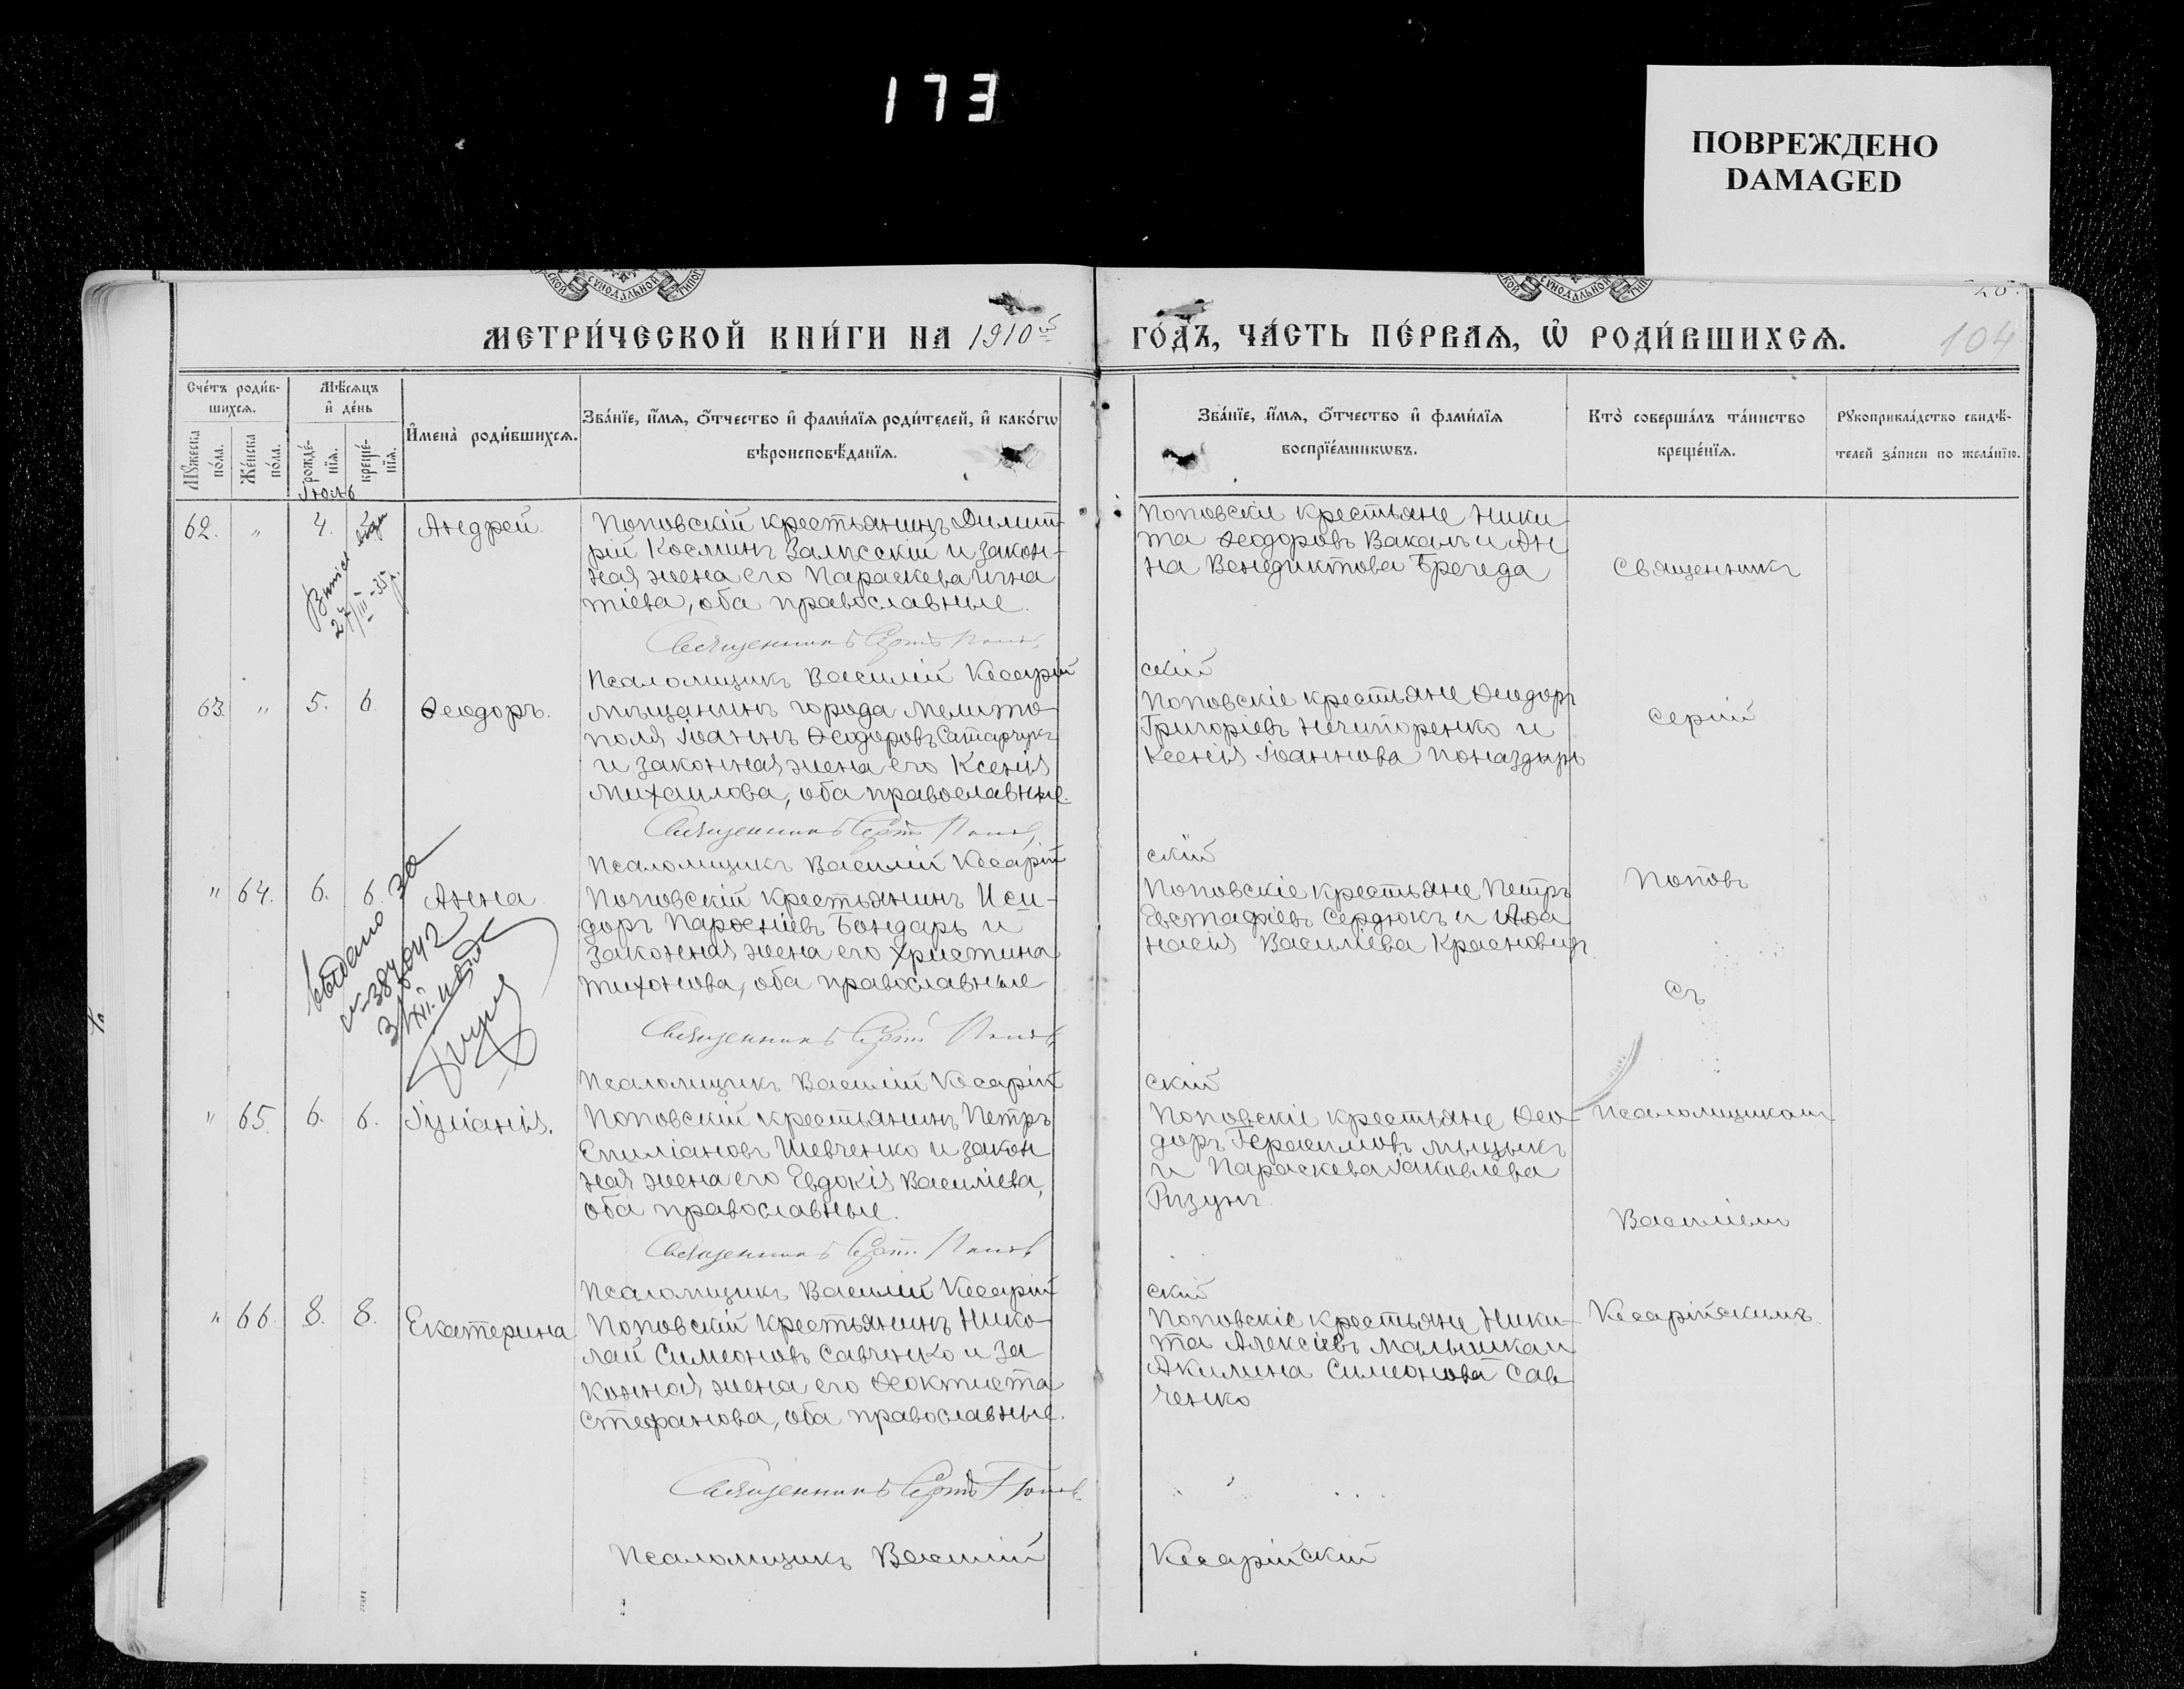 173
ПОВРЕЖДЕНО
DAMAGED
МЕТРИ́ЧЕСКОЙ КНИ́ГИ НА 1910й
ГО́ДЪ, ЧА́СТЬ ПЕ́РВАѦ, Ѽ РОДИ́ВШИХСѦ.
104
Сче́тъ роди́в-
шихсѧ.
Мѣ́сѧцъ
и҆ де́нь
И҆мена̀ роди́вшихсѧ.
Зва́нїе, и҆́мѧ, ѻ҆́тчество и҆ фами́лїѧ роди́телей, и҆ како́гѡ
вѣроисповѣ́данїѧ.
Му́жеска
по́ла.
Же́нска
по́ла.
рожде́-
нїѧ.
креще́-
нїѧ.
Іюль
Зва́нїе, и҆́мѧ, ѻ҆́тчество и҆ фами́лїѧ
воспрїе́мникѡвъ.
Кто̀ соверша́лъ та́инство
креще́нїѧ.
Рꙋкоприкла́дство свидѣ́-
телей за́писи по жела́нїю.
62. " 4. Андрей.
Поповскій крестьянинъ Димит-
рій Косминъ Залѣсскій и закон-
ная жена его Параскева Игна
тіева, оба православные.
Священникъ Сергій Попов,
Псаломщикъ Василій Кесарій
Поповскіе крестьяне Ники-
та Ѳеодоровъ Вакалъ и Ан
на Венедиктова Брегеда
скій
Священникъ
27/III-35 г.
63. " 5. 6. Ѳеодоръ.
мѣщанинъ города Мелито-
поля Іоаннъ Ѳеодоровъ Сатарчукъ
и законная жена его Ксенія
Михаилова, оба православные.
Священникъ Сергій Попов,
Псаломщикъ Василій Кесарій
Поповскіе крестьяне Ѳеодоръ
Григоріевъ Нечипоренко и
Ксенія Іоаннова Поназдырь
скій
Сергій
" 64. 6. 6. Анна
Поповскій крестьянинъ Иси-
доръ Парѳеніевъ Бондарь и
законная жена его Христина
Тихонова, оба православные
Священникъ Сергій Попов
Псаломщикъ Василій Кесарій
Поповскіе крестьяне Петръ
Евстафіевъ Сердюкъ и Аѳа
насія Василіева Красновидъ
скій
Попов
съ
выдано за
" 65. 6. 6. Іуліанія.
Поповскій крестьянинъ Петръ
Емиліановъ Шевченко и закон
ная жена его Евдокія Василіева,
оба православные.
Священникъ Сергій Попов
Псаломщикъ Василій Кесарій
Поповскіе крестьяне Ѳео-
доръ Герасимовъ Мыцыкъ
и Параскева Іаковлева
Ризунъ
скій
Псаломщикомъ
Василіемъ
" 66. 8. 8. Екатерина
Поповскій крестьянинъ Нико-
лай Симеоновъ Савченко и за
конная жена его Ѳеоктиста
Стефанова, оба православные.
Священникъ Сергій Попов
Псаломщикъ Василій
Поповскіе крестьяне Ники-
та Алексіевъ Малышка и
Акилина Симеонова Сав-
ченко
Кесарійскій
Кесарійскимъ